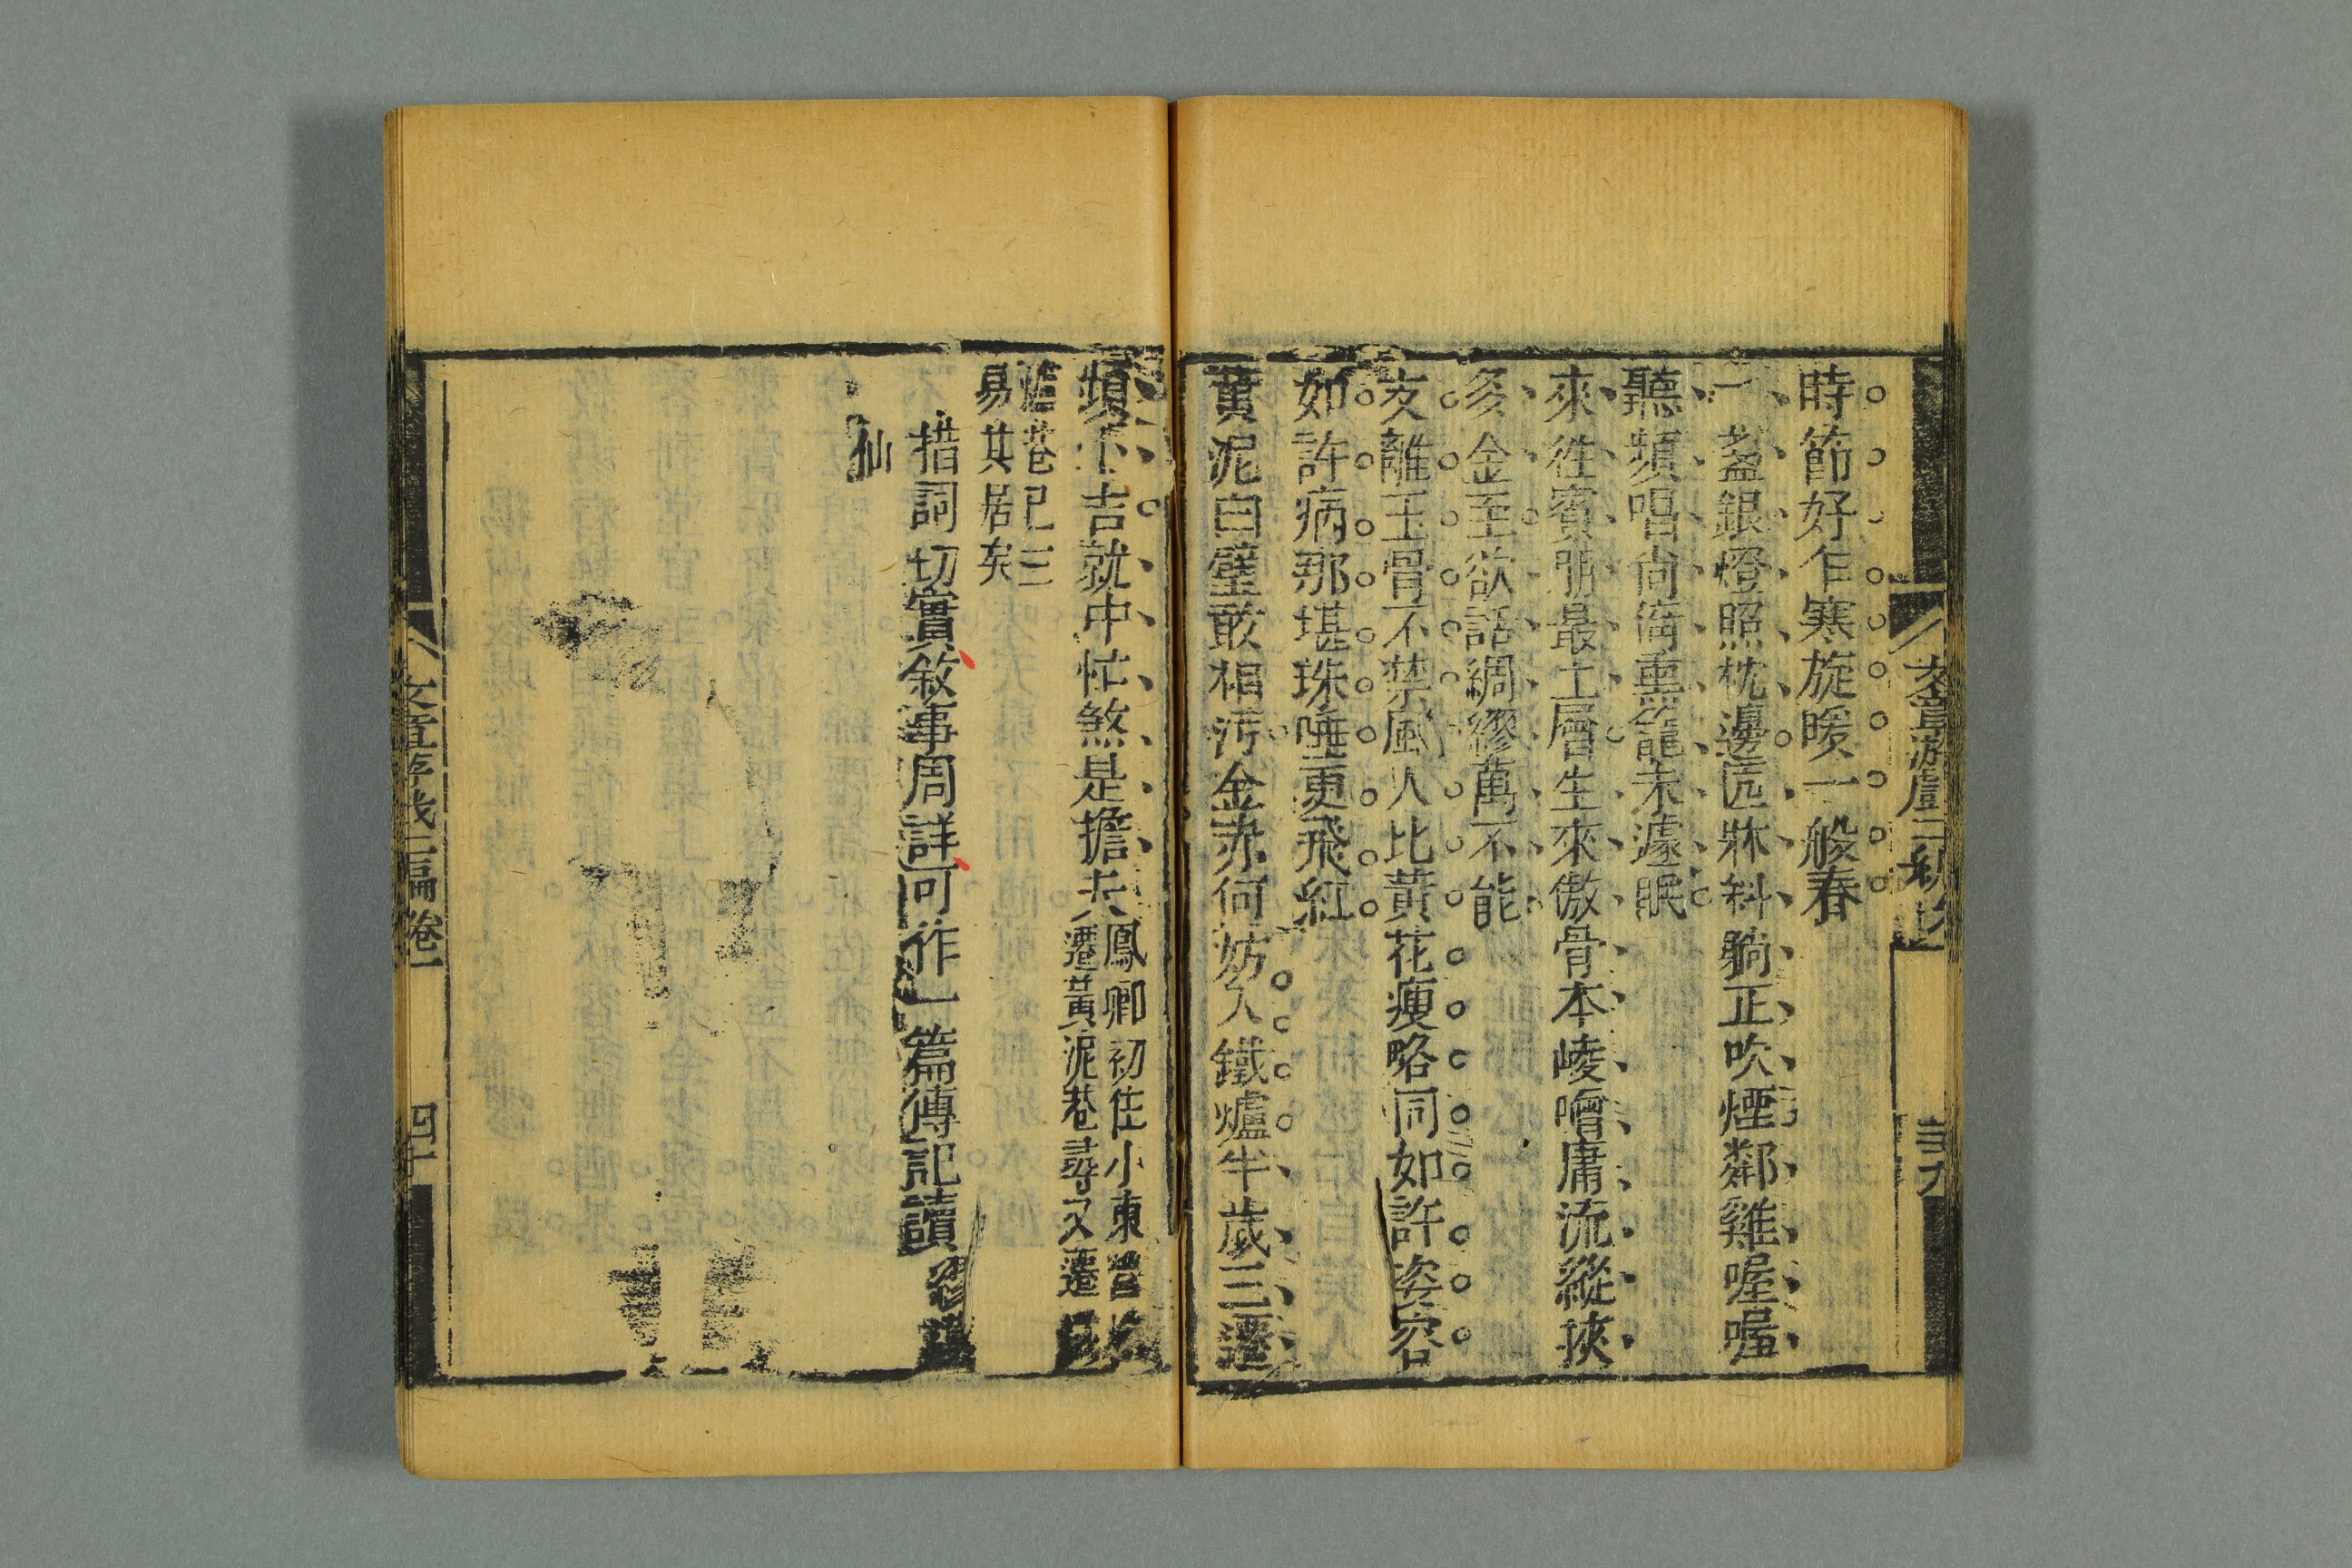 時節好乍寒旋暖一般春
一盞銀燈照枕邊匠牀斜躺正吹煙鄰雞喔喔
聽頻唱尚倚熏籠未遽眠
來往賓朋最上層生來傲骨本崚嶒庸流縱挾
多金至欲話綢繆萬不能
支離玉骨不禁風人比黃花瘦略同如許姿容
如許病那堪珠唾更飛紅
黃泥白璧敢相污金赤何妨入鐵爐半歲三遷
頻卜吉就中忙煞是擔夫
鳳卿初住小東營
遷黃泥巷尋又遷
巷已三
易其居矣
措詞切實敘事周詳可作一篇傳記讀
仙
文章游戲三編 卷一
四十